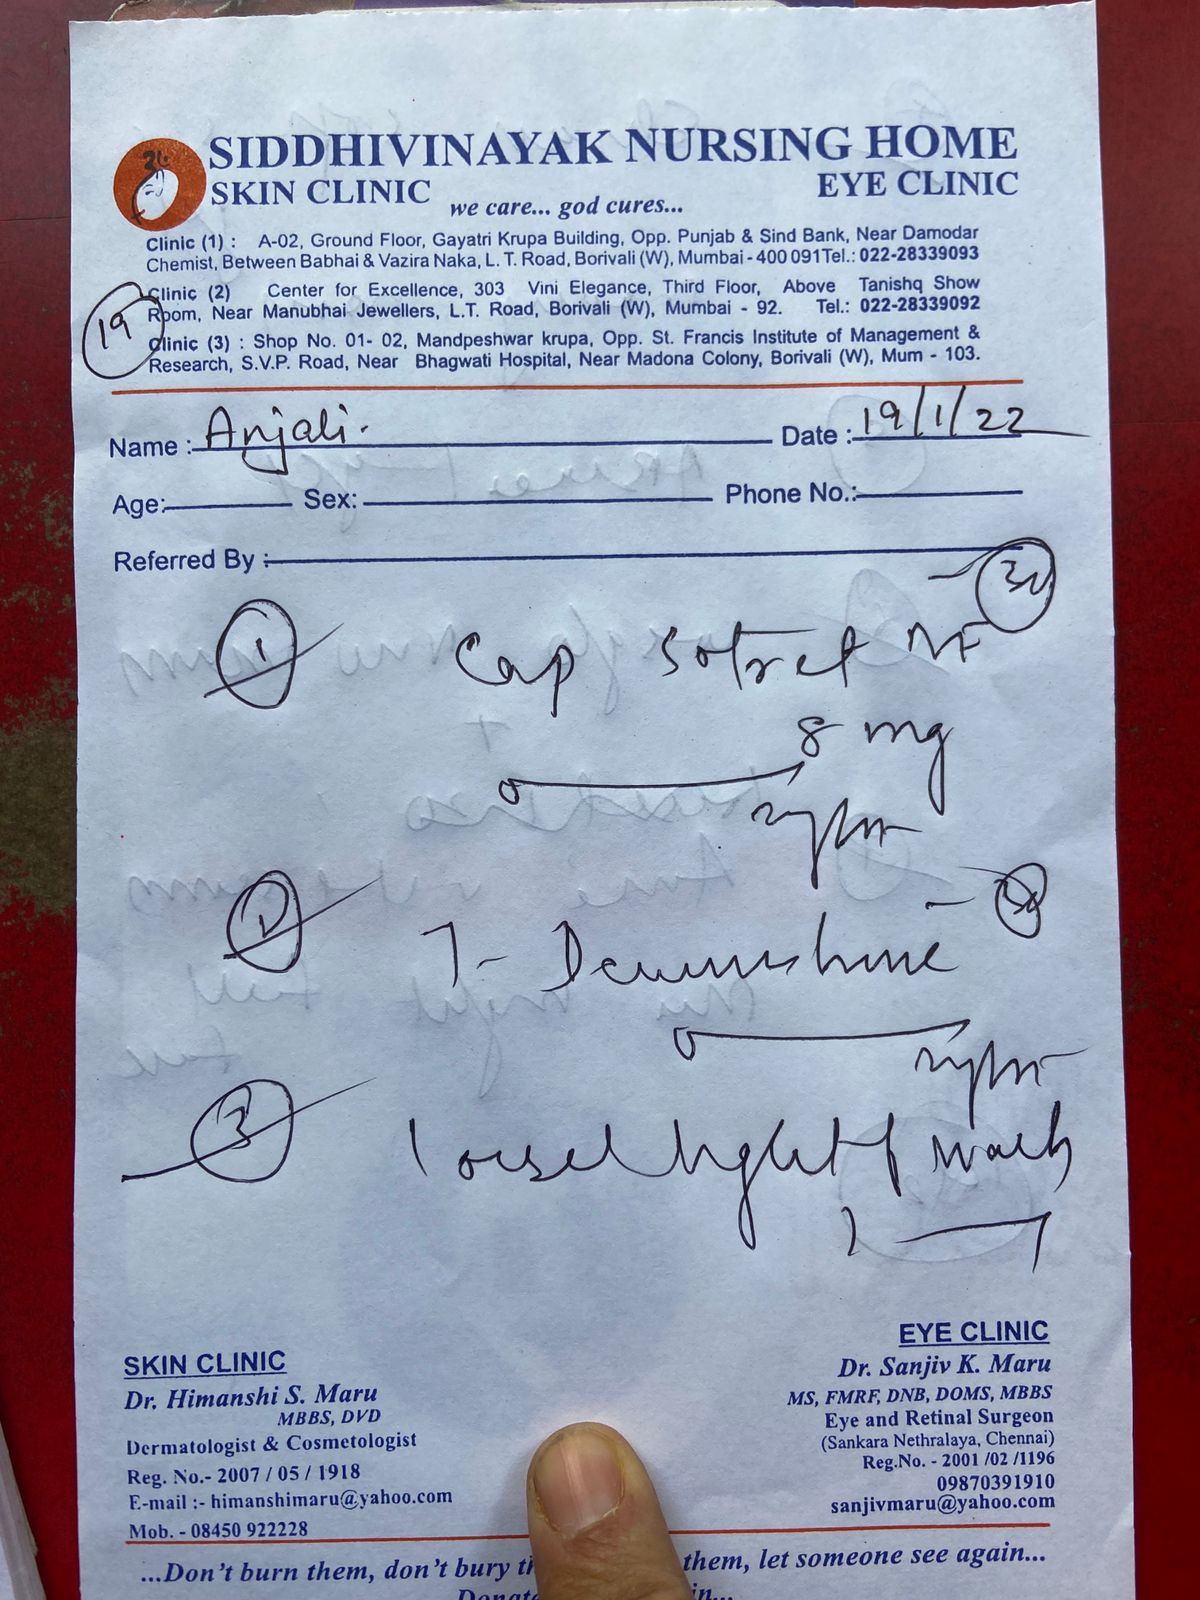 SIDDHIVINAYAK NURSING HOME
SKIN CLINIC EYE CLINIC
we care... god cures...
Clinic (1) : A-02, Ground Floor, Gayatri Krupa Building, Opp. Punjab & Sind Bank, Near Damodar
Chemist, Between Babhai & Vazira Naka, L. T. Road, Borivali (W), Mumbai - 400 091 Tel.: 022-28339093
Clinic (2) Center for Excellence, 303 Vini Elegance, Third Floor, Above Tanishq Show
Room, Near Manubhai Jewellers, L.T. Road, Borivali (W), Mumbai - 92. Tel.: 022-28339092
19
Clinic (3) : Shop No. 01- 02, Mandpeshwar krupa, Opp. St. Francis Institute of Management &
Research, S.V.P. Road, Near Bhagwati Hospital, Near Madona Colony, Borivali (W), Mum - 103.
Name : Anjali. Date : 19/1/22
Age: Sex: Phone No.:
Referred By :
1 Cap Sotret NF
8 mg
night
T-
night
3
SKIN CLINIC
Dr. Himanshi S. Maru
MBBS, DVD
Dermatologist & Cosmetologist
Reg. No.- 2007 / 05 / 1918
E-mail :- himanshimaru@yahoo.com
Mob. - 08450 922228
EYE CLINIC
Dr. Sanjiv K. Maru
MS, FMRF, DNB, DOMS, MBBS
Eye and Retinal Surgeon
(Sankara Nethralaya, Chennai)
Reg.No. - 2001 /02 /1196
09870391910
sanjivmaru@yahoo.com
...Don't burn them, don't bury them, let someone see again...